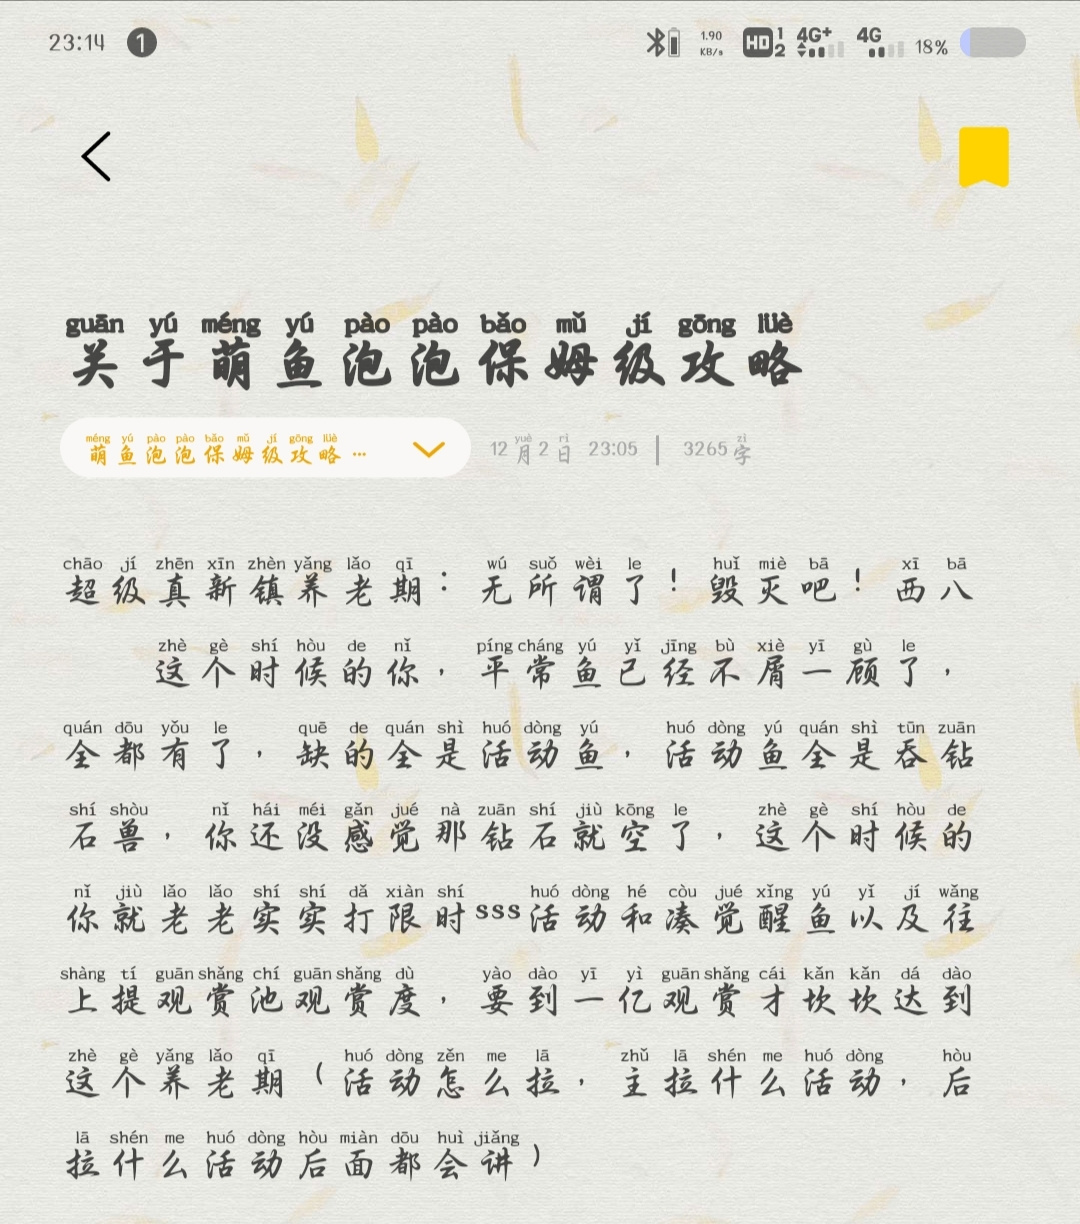 23:14 1 1.90 KB/s HD 1 2 4G+ 4G 18%
guān yú méng yú pào pào bǎo mǔ jí gōng lüè
关于萌鱼泡泡保姆级攻略
méng yú pào pào bǎo mǔ jí gōng lüè yuè rì zì
萌鱼泡泡保姆级攻略… 12月2日 23:05 | 3265字
chāo jí zhēn xīn zhèn yǎng lǎo qī wú suǒ wèi le huǐ miè bā xī bā
超级真新镇养老期：无所谓了！毁灭吧！西八
zhè gè shí hòu de nǐ píng cháng yú yǐ jīng bù xiè yī gù le
这个时候的你，平常鱼已经不屑一顾了，
quán dōu yǒu le quē de quán shì huó dòng yú huó dòng yú quán shì tūn zuān
全都有了，缺的全是活动鱼，活动鱼全是吞钻
shí shòu nǐ hái méi gǎn jué nà zuān shí jiù kōng le zhè gè shí hòu de
石兽，你还没感觉那钻石就空了，这个时候的
nǐ jiù lǎo lǎo shí shí dǎ xiàn shí huó dòng hé còu jué xǐng yú yǐ jí wǎng
你就老老实实打限时sss活动和凑觉醒鱼以及往
shàng tí guān shǎng chí guān shǎng dù yào dào yī yì guān shǎng cái kǎn kǎn dá dào
上提观赏池观赏度，要到一亿观赏才坎坎达到
zhè gè yǎng lǎo qī huó dòng zěn me lā zhǔ lā shén me huó dòng hòu
这个养老期（活动怎么拉，主拉什么活动，后
lā shén me huó dòng hòu miàn dōu huì jiǎng
拉什么活动后面都会讲）